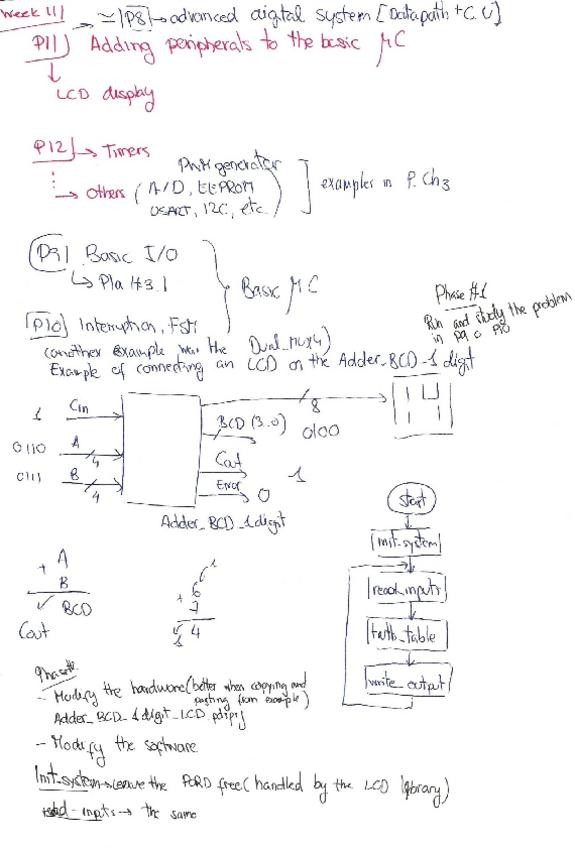 Week 11)
≈ |P8| → advanced digital system [Datapath + C.U]
P11) Adding peripherals to the basic μC
↓
LCD display
P12 → Timers
PWM generator
→ Others (A/D, EEPROM
USART, I2C, etc)
] examples in P. Ch3
P9) Basic I/O
↳ Pla #3.1
Basic μC
P10) Interruption, FSM
(another example was the Dual_mux4)
Example of connecting an LCD on the Adder_BCD_1 digit
Phase #1
Run and study the problem
in P9 o P10
1 Cin
0110 A 4
0111 B 4
8
14
BCD (3..0) 0100
Cout 1
Error 0
Adder_BCD_1digit
+ A
B
BCD
Cout
1
+ 6
7
4
1
Start
init_system
read_inputs
truth_table
write_output
- Modify the hardware (better when copying and
pasting from example)
Adder_BCD_1digit_LCD
- Modify the software
Init_system → leave the PORD free (handled by the LCD library)
read_inputs → the same